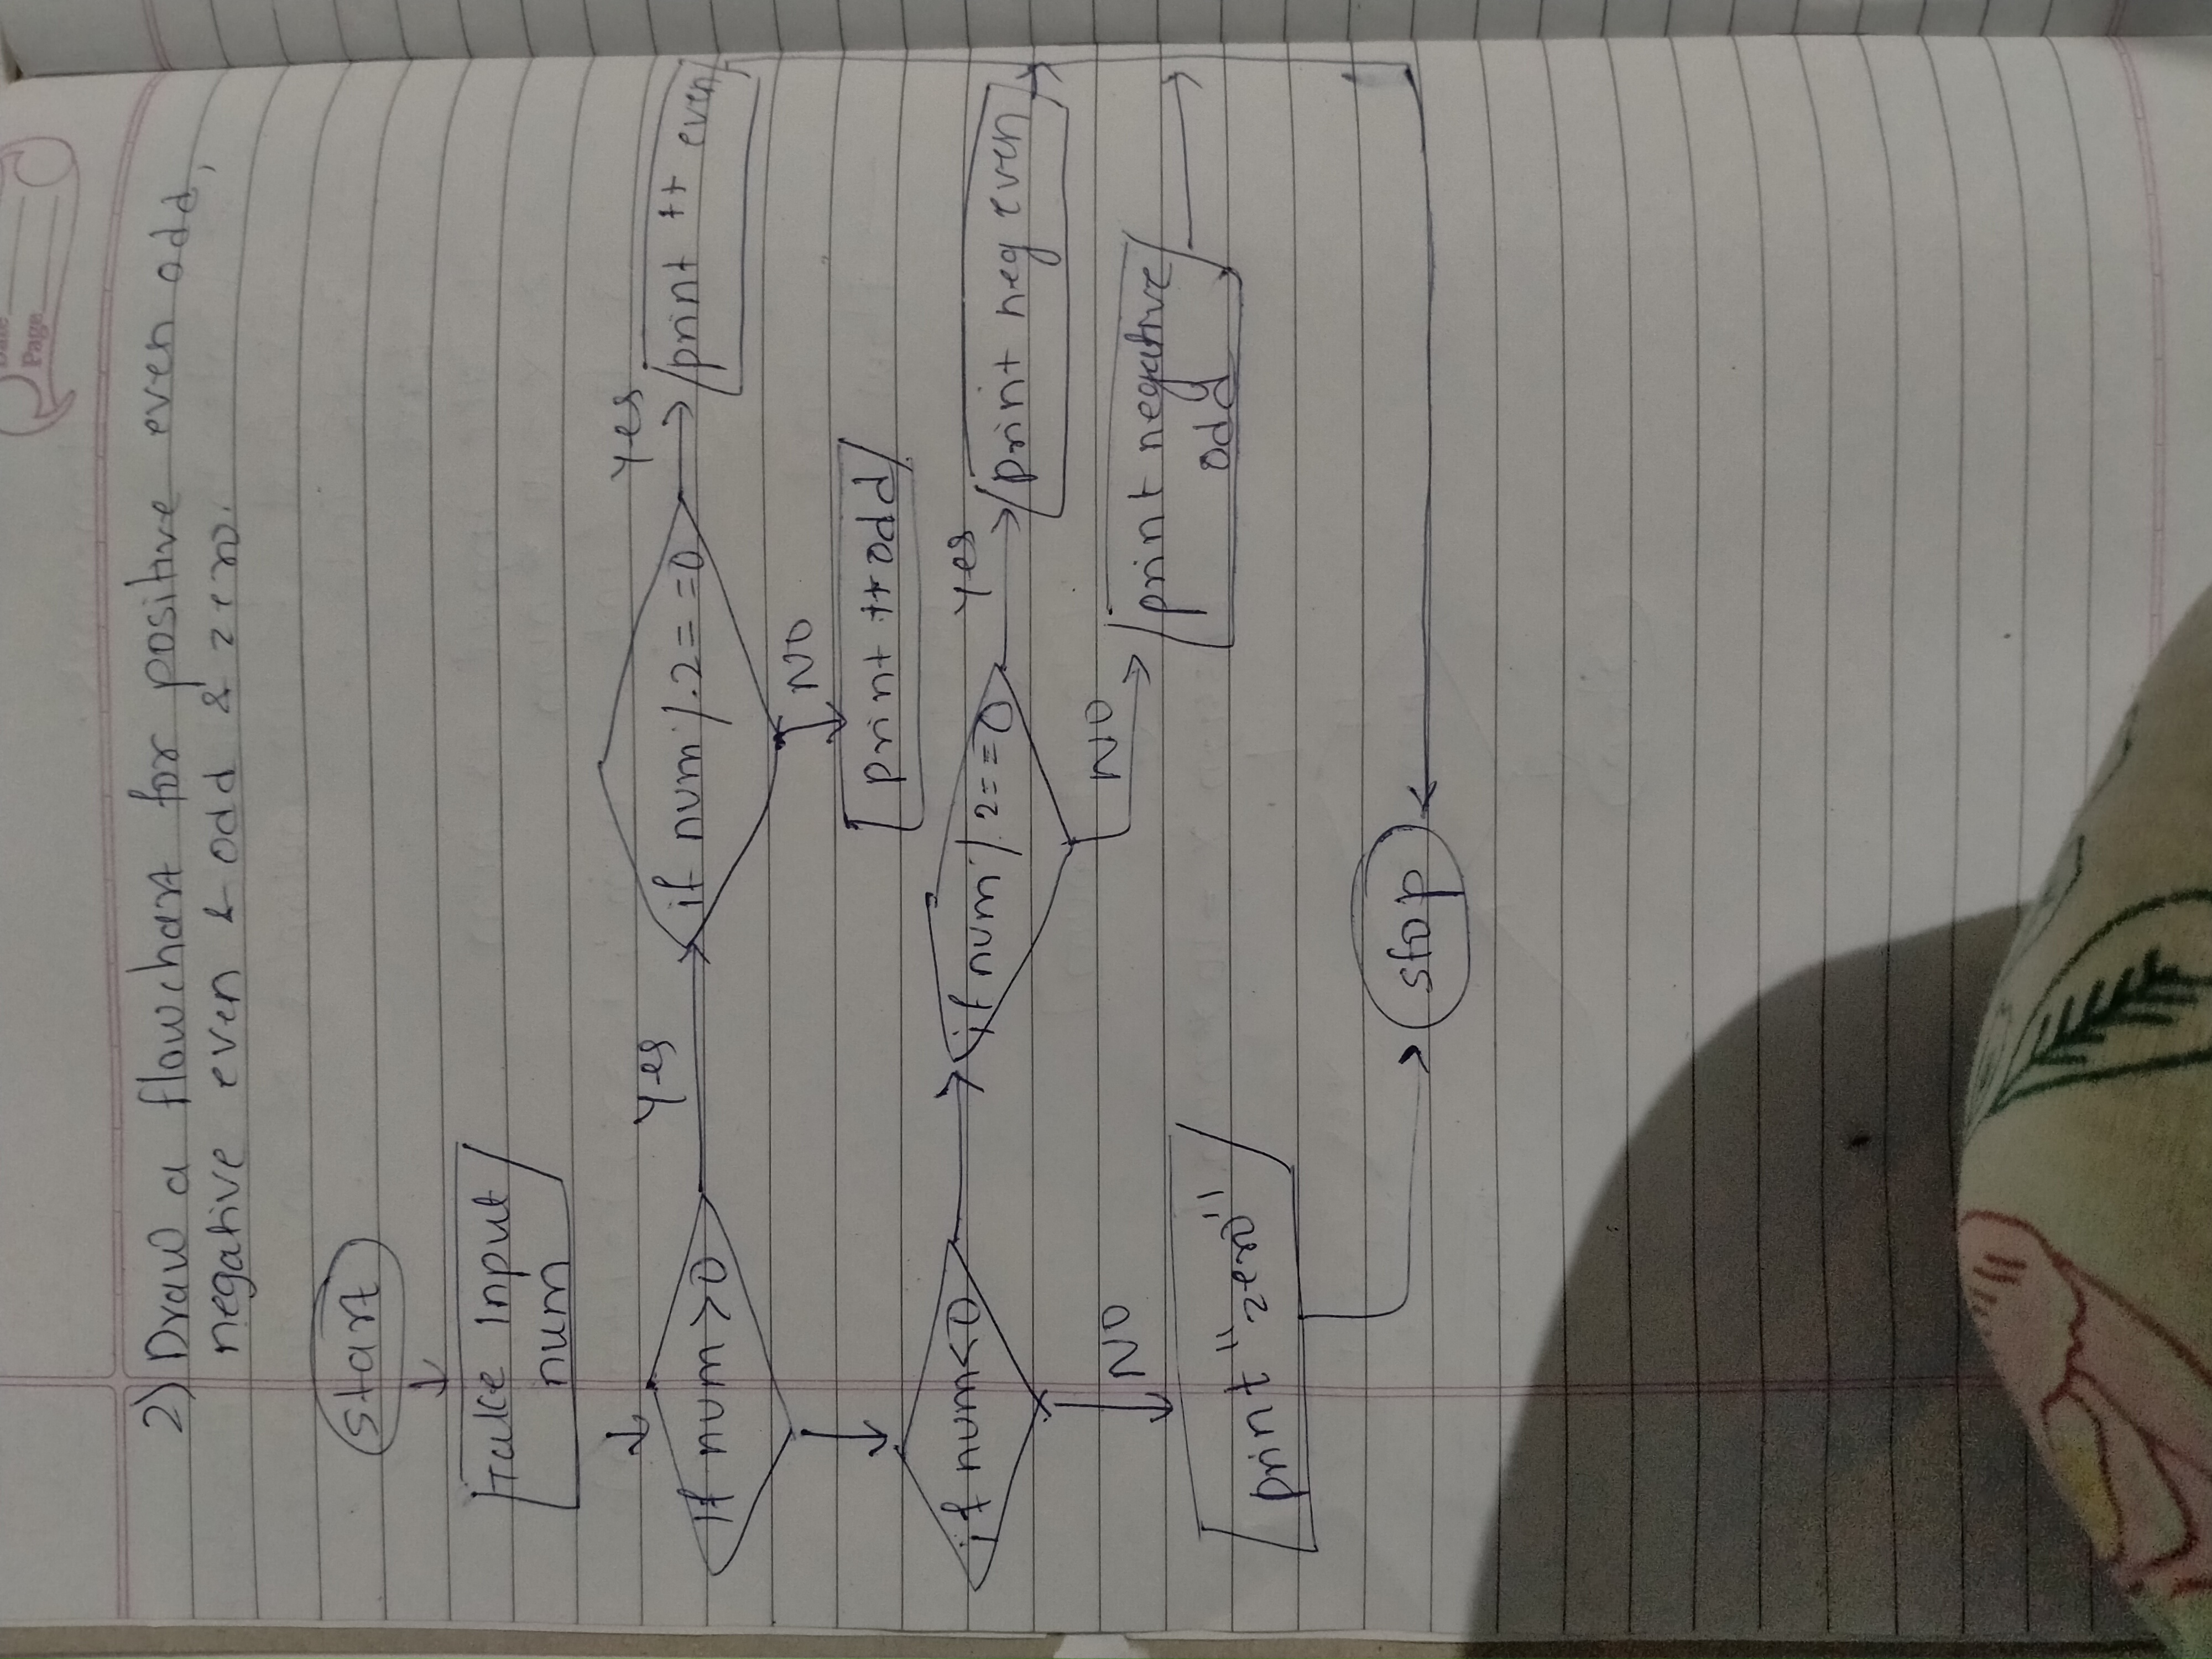 Date
Page
2) Draw a flowchart for positive even odd,
negative even & odd & zero.
Start
Take Input
num
If num > 0
Yes
if num % 2 == 0
Yes
print +ve even
NO
print +ve odd
if num < 0
if num % 2 == 0
Yes
print neg even
NO
print negative
odd
NO
print "zero"
stop